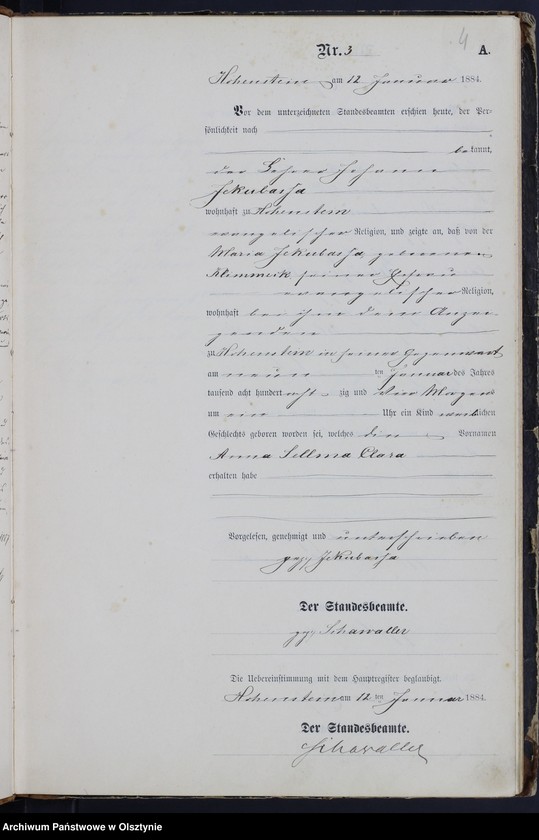 4
Nr. 3 A.
Hohenstein am 12 Januar 1884.
Vor dem unterzeichneten Standesbeamten erschien heute, der Per=
sönlichkeit nach
bekannt,
der Johann
Jekubassa
wohnhaft zu Hohenstein
evangelischer Religion, und zeigte an, daß von der
Maria Jekubassa geborenen
seiner Ehefrau
evangelischer Religion,
wohnhaft bei ihm dem Anzei-
genden
zu Hohenstein in seiner Gegenwart
am neun ten Januar des Jahres
tausend acht hundert acht zig und vier
um ein Uhr ein Kind weiblichen
Geschlechts geboren worden sei, welches die Vornamen
Anna Sellma Clara
erhalten habe
Vorgelesen, genehmigt und unterschrieben
gez. Jekubassa
Der Standesbeamte.
gez. Schawaller
Die Uebereinstimmung mit dem Hauptregister beglaubigt.
Hohenstein am 12 ten Januar 1884.
Der Standesbeamte.
Schawaller
Archiwum Państwowe w Olsztynie